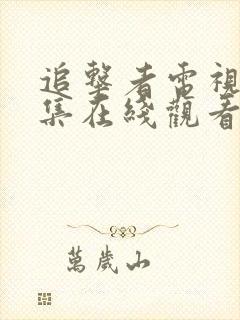 追擊者電視
集在綫觀看
萬歲山